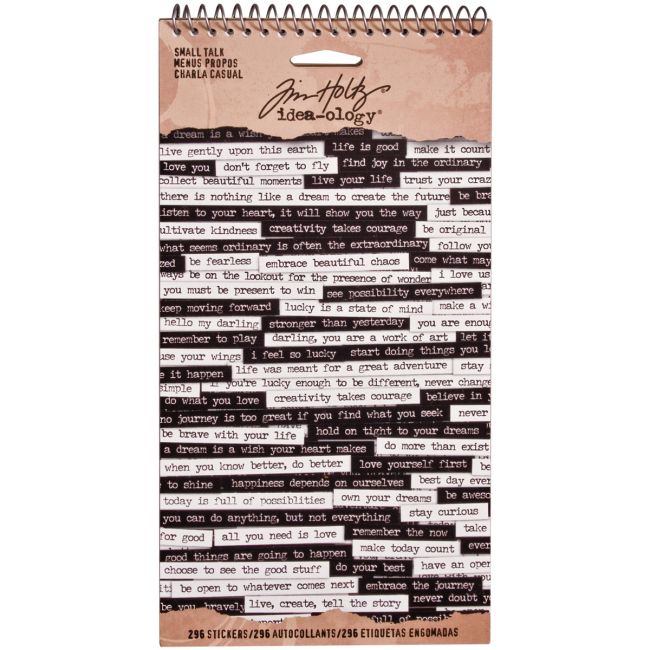 SMALL TALK
MENUS PROPOS
CHARLA CASUAL
Tim Holtz
idea-ology®
dream is a wish your heart makes
live gently upon this earth life is good make it count
love you don't forget to fly find joy in the ordinary
collect beautiful moments live your life trust your craz
there is nothing like a dream to create the future be bra
listen to your heart, it will show you the way just becau
ultivate kindness creativity takes courage be original
what seems ordinary is often the extraordinary follow yo
zed be fearless embrace beautiful chaos come what may
ways be on the lookout for the presence of wonder i love us
you must be present to win see possibility everywhere
keep moving forward lucky is a state of mind make a wi
hello my darling stronger than yesterday you are enoug
remember to play darling, you are a work of art let i
use your wings i feel so lucky start doing things you l
e it happen life was meant for a great adventure stay
simple if you're lucky enough to be different, never change
do what you love creativity takes courage believe in y
no journey is too great if you find what you seek never
be brave with your life hold on tight to your dreams
a dream is a wish your heart makes do more than exist
when you know better, do better love yourself first be
to shine happiness depends on ourselves best day eve
today is full of possiblities own your dreams be aweso
you can do anything, but not everything stay curious
for good all you need is love remember the now take
good things are going to happen make today count ever
choose to see the good stuff do your best have an open
it be open to whatever comes next embrace the journey
be you bravely live, create, tell the story never doubt y
296 STICKERS/296 AUTOCOLLANTS/296 ETIQUETAS ENGOMADAS